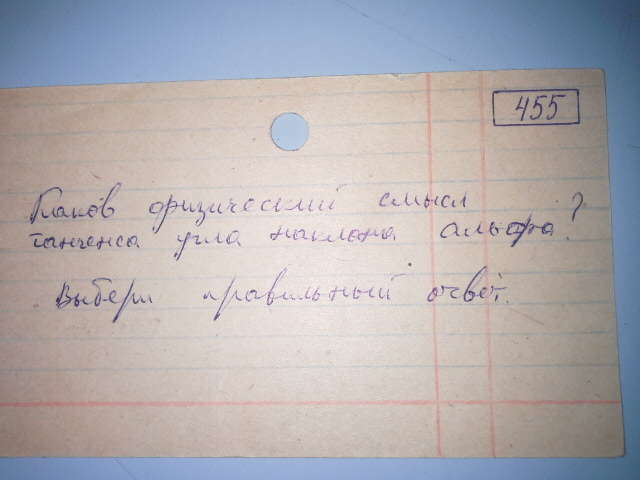 455
Каков физический смысл
тангенса угла наклона альфа?
Выбери правильный ответ.